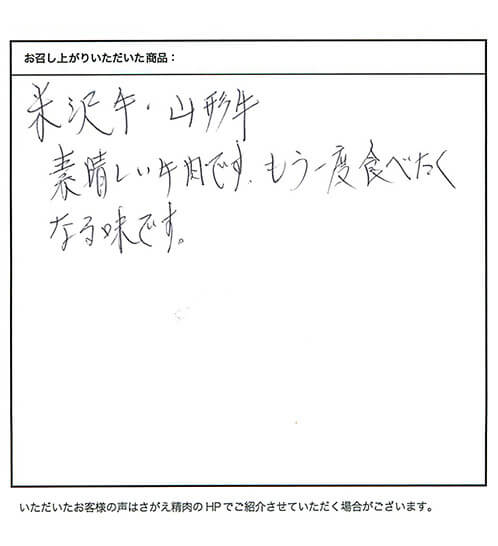 お召し上がりいただいた商品：
米沢牛・山形牛
素晴しい牛肉です。もう一度食べたく
なる味です。
いただいたお客様の声はさがえ精肉のHPでご紹介させていただく場合がございます。